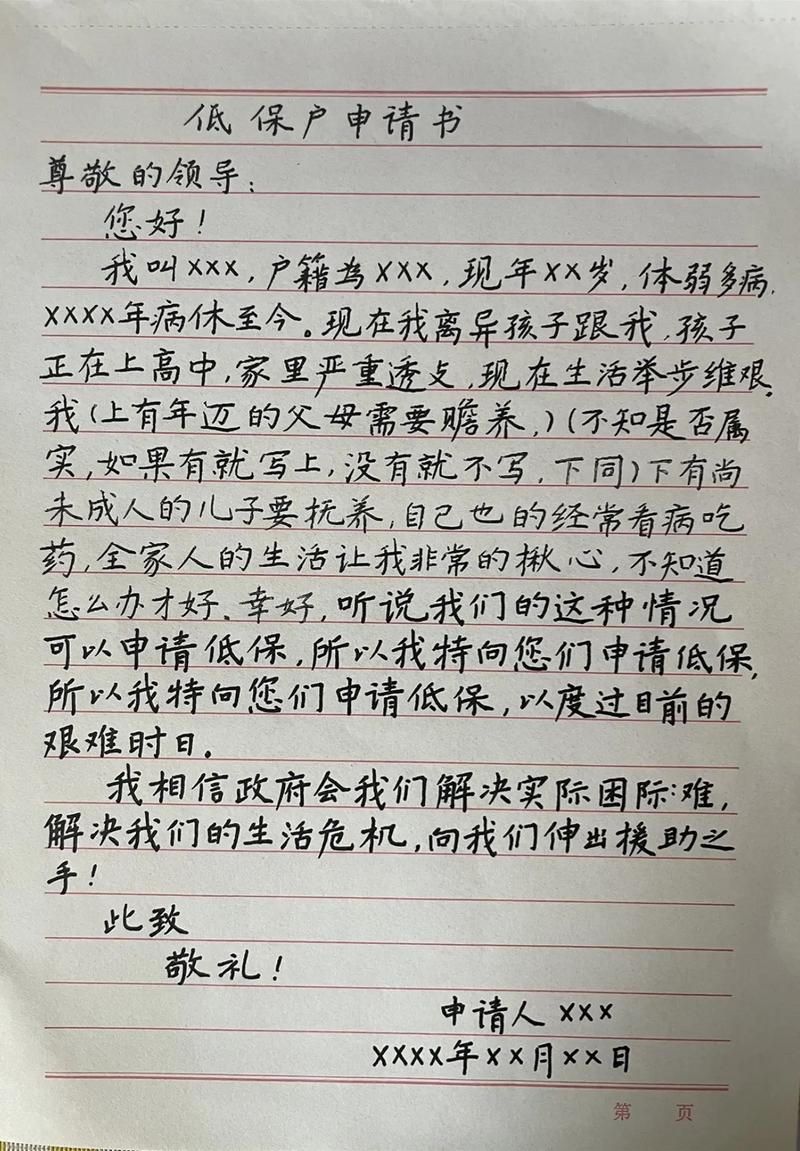 低保户申请书
尊敬的领导:
您好!
我叫xxx,户籍为xxx,现年xx岁,体弱多病,
xxxx年病休至今。现在我离异孩子跟我,孩子
正在上高中,家里严重透支,现在生活举步维艰,
我(上有年迈的父母需要赡养,)(不知是否属
实,如果有就写上,没有就不写,下同)下有尚
未成人的儿子要抚养,自己也的经常看病吃
药,全家人的生活让我非常的揪心,不知道
怎么办才好、幸好,听说我们的这种情况
可以申请低保,所以我特向您们申请低保,
所以我特向您们申请低保,以度过目前的
艰难时日。
我相信政府会我们解决实际困际难,
解决我们的生活危机,向我们伸出援助之
手!
此致
敬礼!
申请人 xxx
xxxx年xx月xx日
第 页